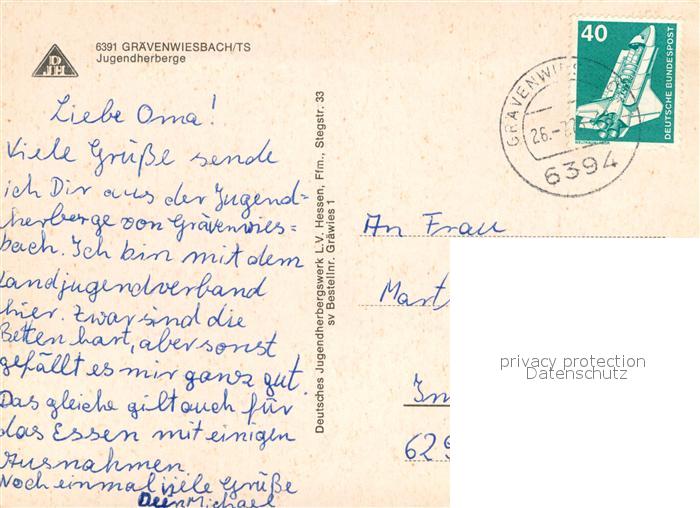 DJH
6391 GRÄVENWIESBACH/TS
Jugendherberge
Liebe Oma!
Viele Grüße sende
ich Dir aus der Jugend=
herberge von Grävenwies=
bach. Ich bin mit dem
Landjugendverband
hier. Zwar sind die
Betten hart, aber sonst
gefällt es mir ganz gut.
Das gleiche gilt auch für
das Essen mit einigen
Ausnahmen
Noch einmal viele Grüße
Dein Michael
Deutsches Jugendherbergswerk L.V. Hessen, Ffm., Stegstr. 33
sv Bestellnr. Gräwies 1
40
DEUTSCHE BUNDESPOST
GRÄVENWIES
26.-7.7
6394
An Frau
Mart
In
629
privacy protection
Datenschutz